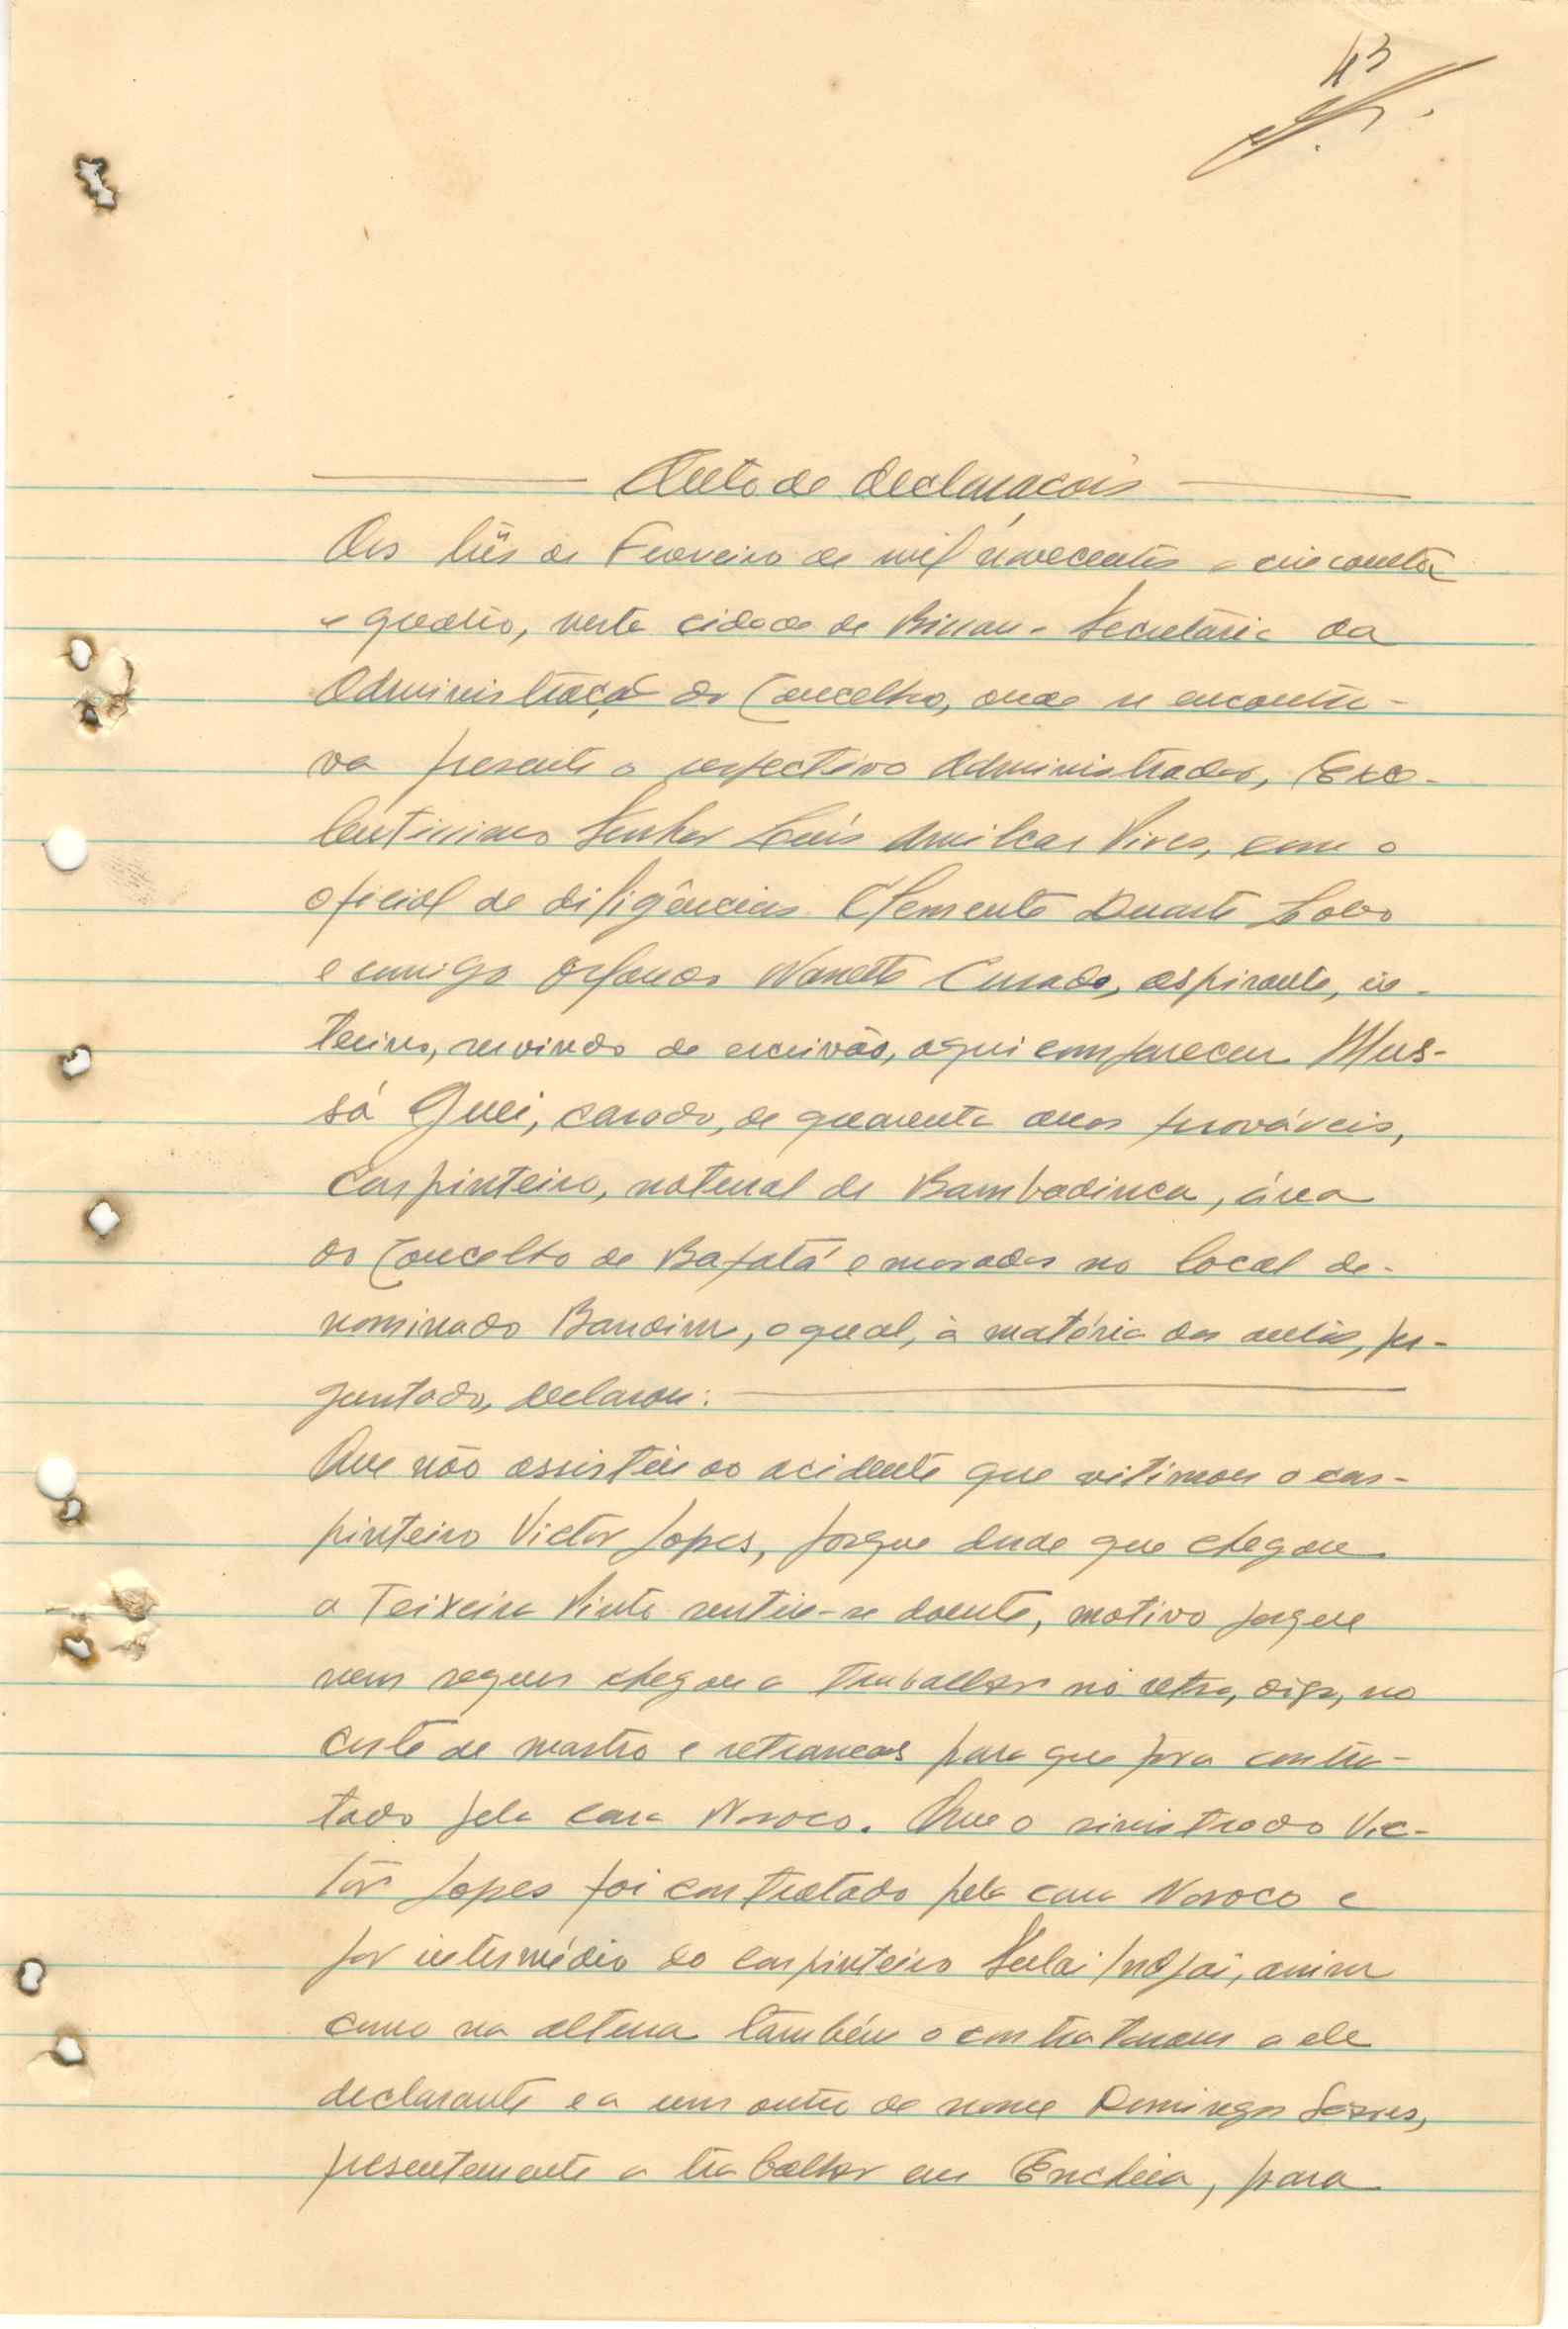 43
Auto de declarações
Aos três de Fevereiro de mil novecentos e cincoenta
e quatro, nesta cidade de Bissau - Secretária da
Administração do Concelho, onde se encontra-
va presente o respectivo Administrador, Exce-
lentissimo Senhor Luís Amilcar Pires, com o
oficial de diligências Clemente Duarte Lobo
e comigo Orlando Curado, aspirante, in-
terino, servindo de escrivão, aqui compareceu Mus-
sá Guei, casado, de quarenta anos prováveis,
carpinteiro, natural de Bambadinca, área
do Concelho de Bafatá e morador no local de-
nominado Bandim, o qual, à matéria dos autos, per-
guntado, declarou:
Que não assistiu ao acidente que vitimou o car-
pinteiro Victor Lopes, porque desde que chegou
a Teixeira Pinto sentiu-se doente, motivo porque
nem sequer chegou a trabalhar no, digo, no
corte de mastro e retrancas para que fora contra-
tado pela casa Nosoco. Que o sinistrado Vic-
tor Lopes foi contratado pela casa Nosoco e
por intermédio do carpinteiro, assim
como na altura também o contrataram a ele
declarante e a um outro de nome Domingos
presentemente a trabalhar em Encheia, para